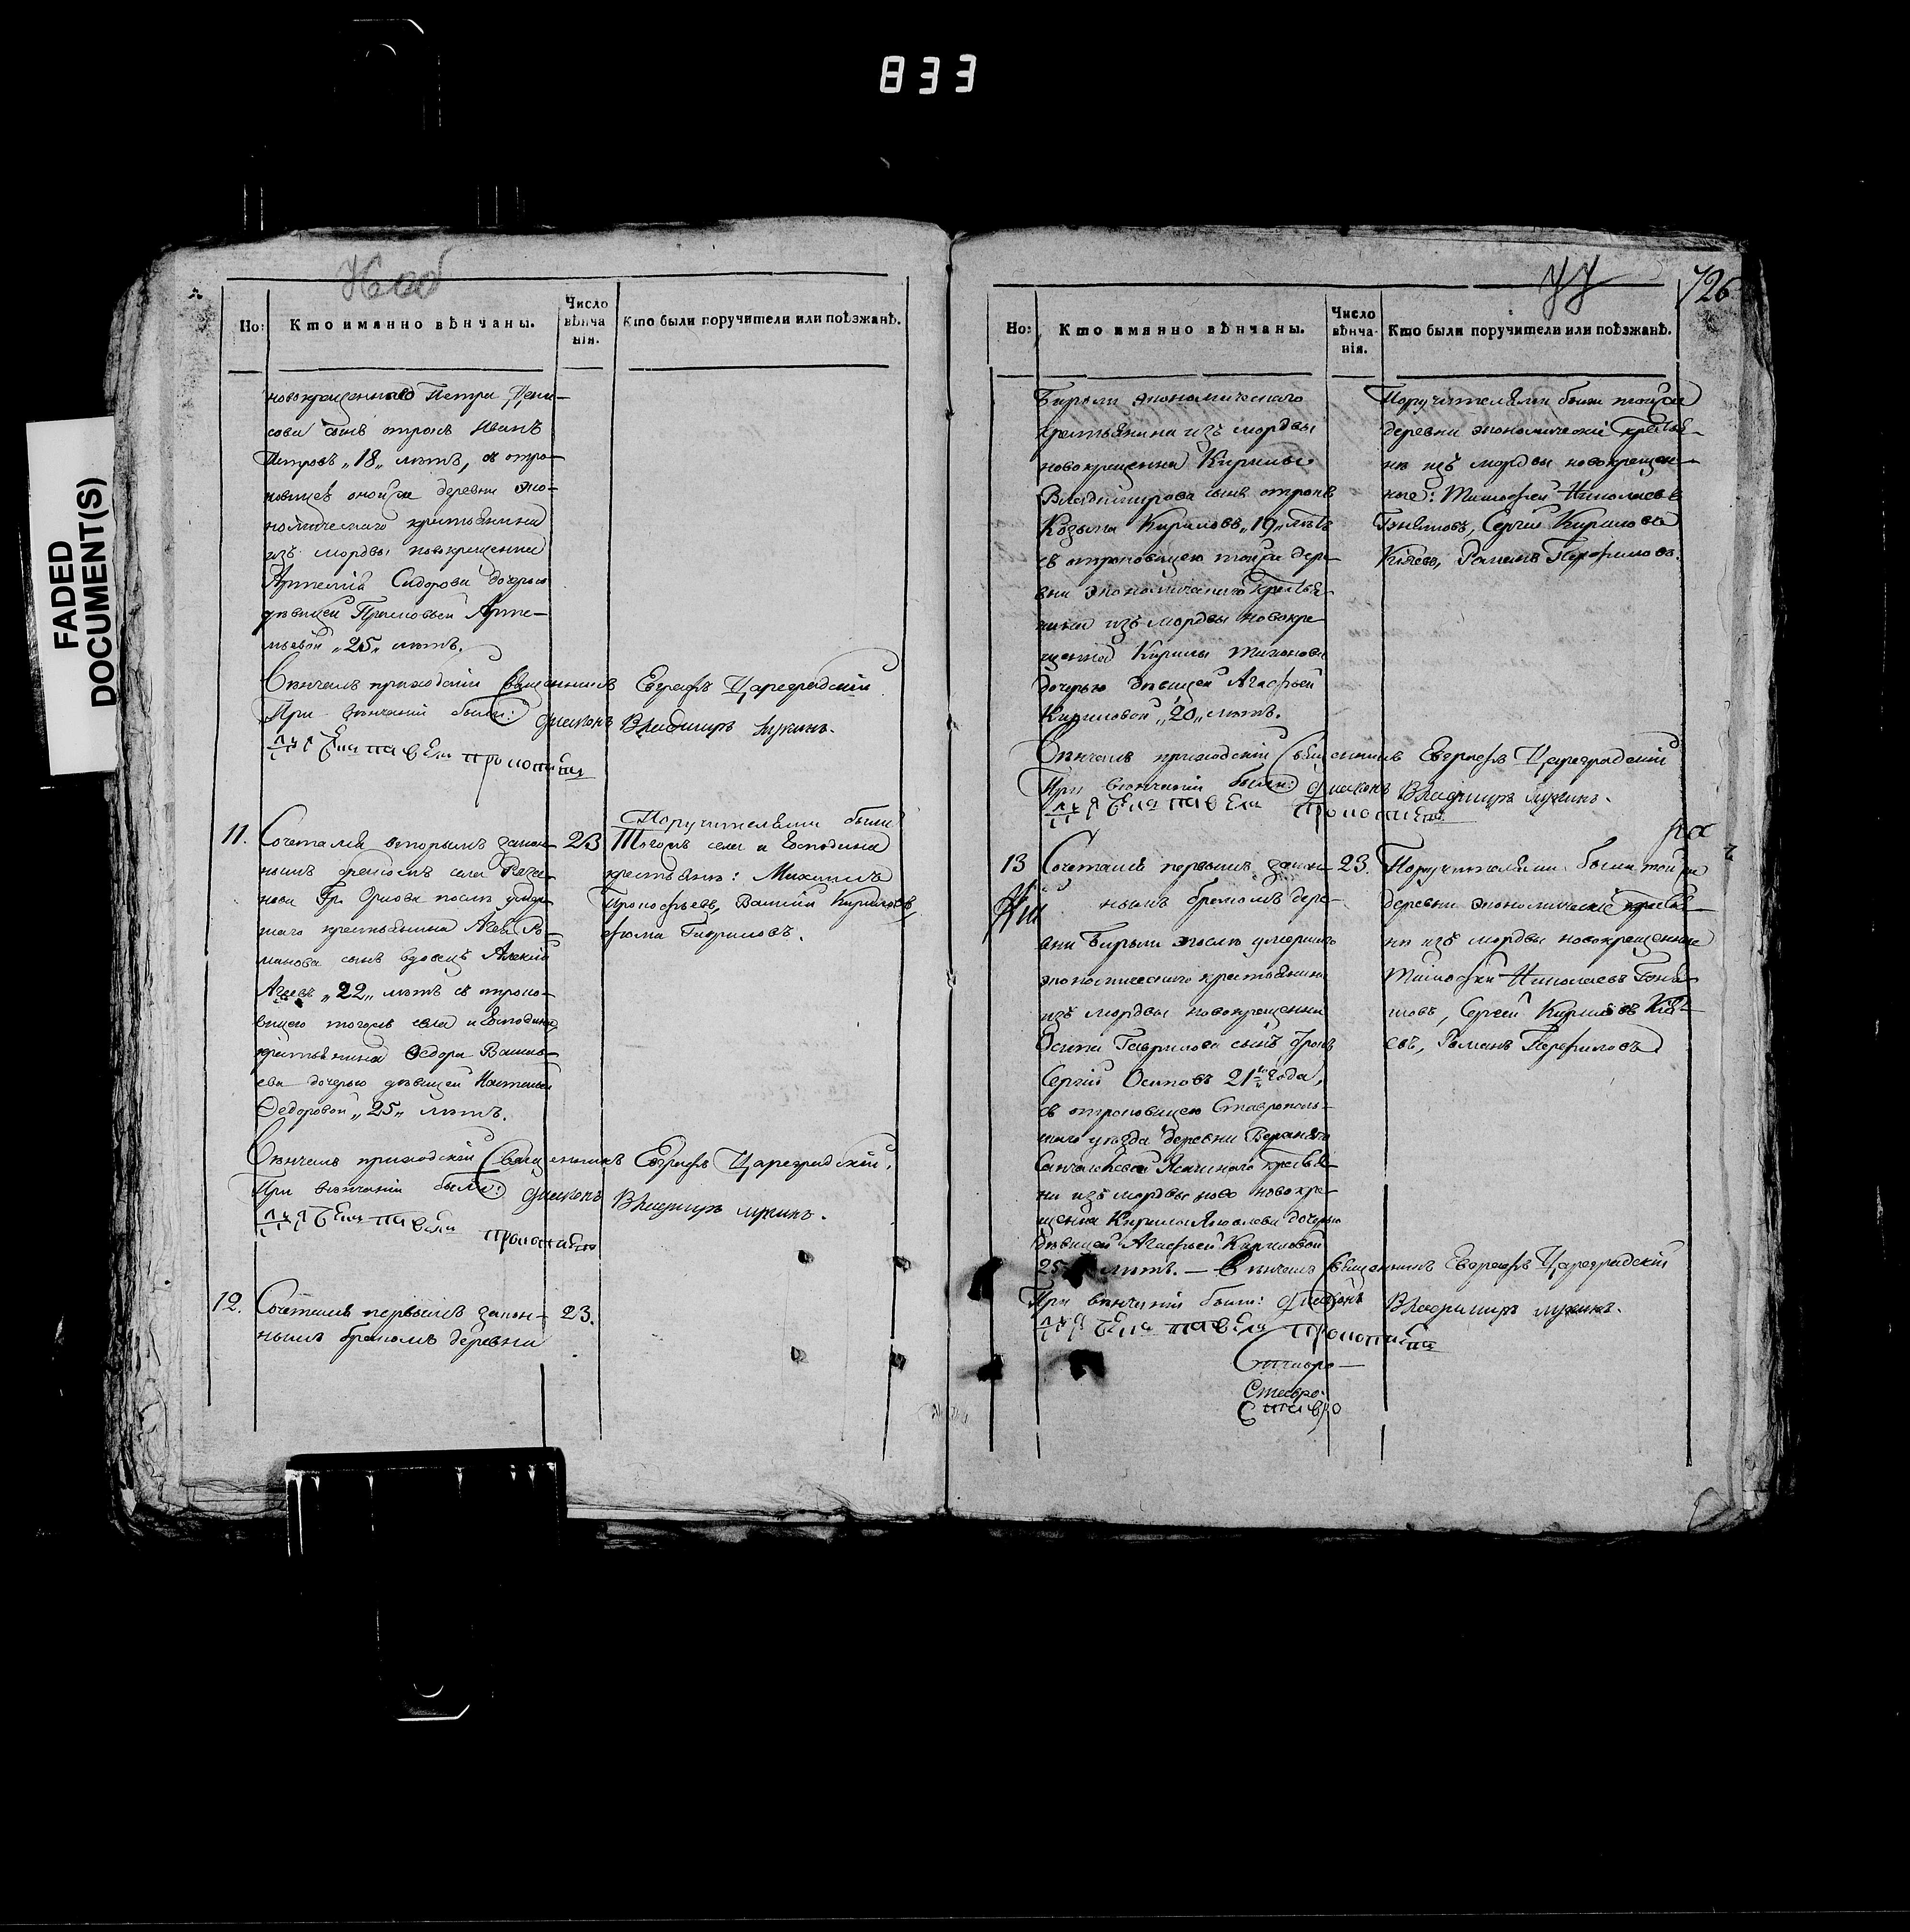 833
FADED
DOCUMENT(S)
Но:
Кто имянно вѣнчаны.
Число
вѣнча
нія.
Кто были поручители или поѣзжанѣ.
новокрещеннаго Петра Дени-
сова сынъ отрокъ Иванъ
Петровъ „18„ лѣтъ, съ отро-
ковицею оной же деревни эко-
номическаго крестьянина
изъ мордвы новокрещенна
Артемія Сидорова дочерью
дѣвицей Арте-
мьевой „25„ лѣтъ.
Вѣнчалъ приходскій священникъ Евграфъ Цареградскій
При вѣнчаніи были: діаконъ Владимиръ Лукинъ.
11.
Сочетался вторымъ закон-
нымъ бракомъ села
Гр. Орлова послѣ умер-
шаго крестьянина Агея Ро-
манова сынъ вдовецъ Алексѣй
Агеевъ „22„ лѣтъ съ отроко-
вицею тогожъ села и Господина
крестьянина Федора Василь-
ева дочерью дѣвицей Настасьей
Федоровой „25„ лѣтъ.
23
Поручителями были
Тогожъ села и Господина
крестьяне: Михаилъ
Прокофьевъ, Василій Кириловъ,
Фома Гавриловъ.
Вѣнчалъ приходскій священникъ Евграфъ Цареградскій.
При вѣнчаніи были: діаконъ Владимиръ Лукинъ.
12.
Сочетался первымъ закон-
нымъ бракомъ деревни
23.
126
Но:
Кто имянно вѣнчаны.
Число
вѣнча-
нія.
Кто были поручители или поѣзжанѣ.
Бирли экономическаго
крестьянина изъ мордвы
новокрещенна Кирилы
Владимирова сынъ отрокъ
Козьма Кириловъ „19„ лѣтъ
съ отроковицею тойже дере-
вни экономическаго крестья-
нина изъ мордвы новокре-
щенна Кирилы Тихонова
дочерью дѣвицей Агафьей
Кириловой „20„ лѣтъ.
Поручителями были тойже
деревни экономическіе крестья-
не изъ мордвы новокрещен-
ные: Тимофей Николаевъ
Сергѣй Кириловъ
Романъ Перфиловъ.
Вѣнчалъ приходскій священникъ Евграфъ Цареградскій
При вѣнчаніи были: діаконъ Владимиръ Лукинъ.
13
Сочетался первымъ закон-
нымъ бракомъ дере-
вни Бирли послѣ умершаго
экономическаго крестьянина
изъ мордвы новокрещенна
Осипа Гаврилова сынъ отрокъ
Сергѣй Осиповъ 21го года,
съ отроковицею Ставрополь-
скаго уѣзда деревни
Ясашнаго крестья-
на изъ мордвы ново новокре-
щенна Кирилы Яковлева дочерью
дѣвицей Агафьей Кириловой
25 лѣтъ. — Вѣнчалъ священникъ Евграфъ Цареградскій
При вѣнчаніи были: діаконъ Владимиръ Лукинъ.
23.
Поручителями были тойже
деревни экономическіе крестья-
не изъ мордвы новокрещенные
Тимофей Николаевъ
Сергѣй Кириловъ
Романъ Перфиловъ.
Ставро-
Ставро-
Ставро